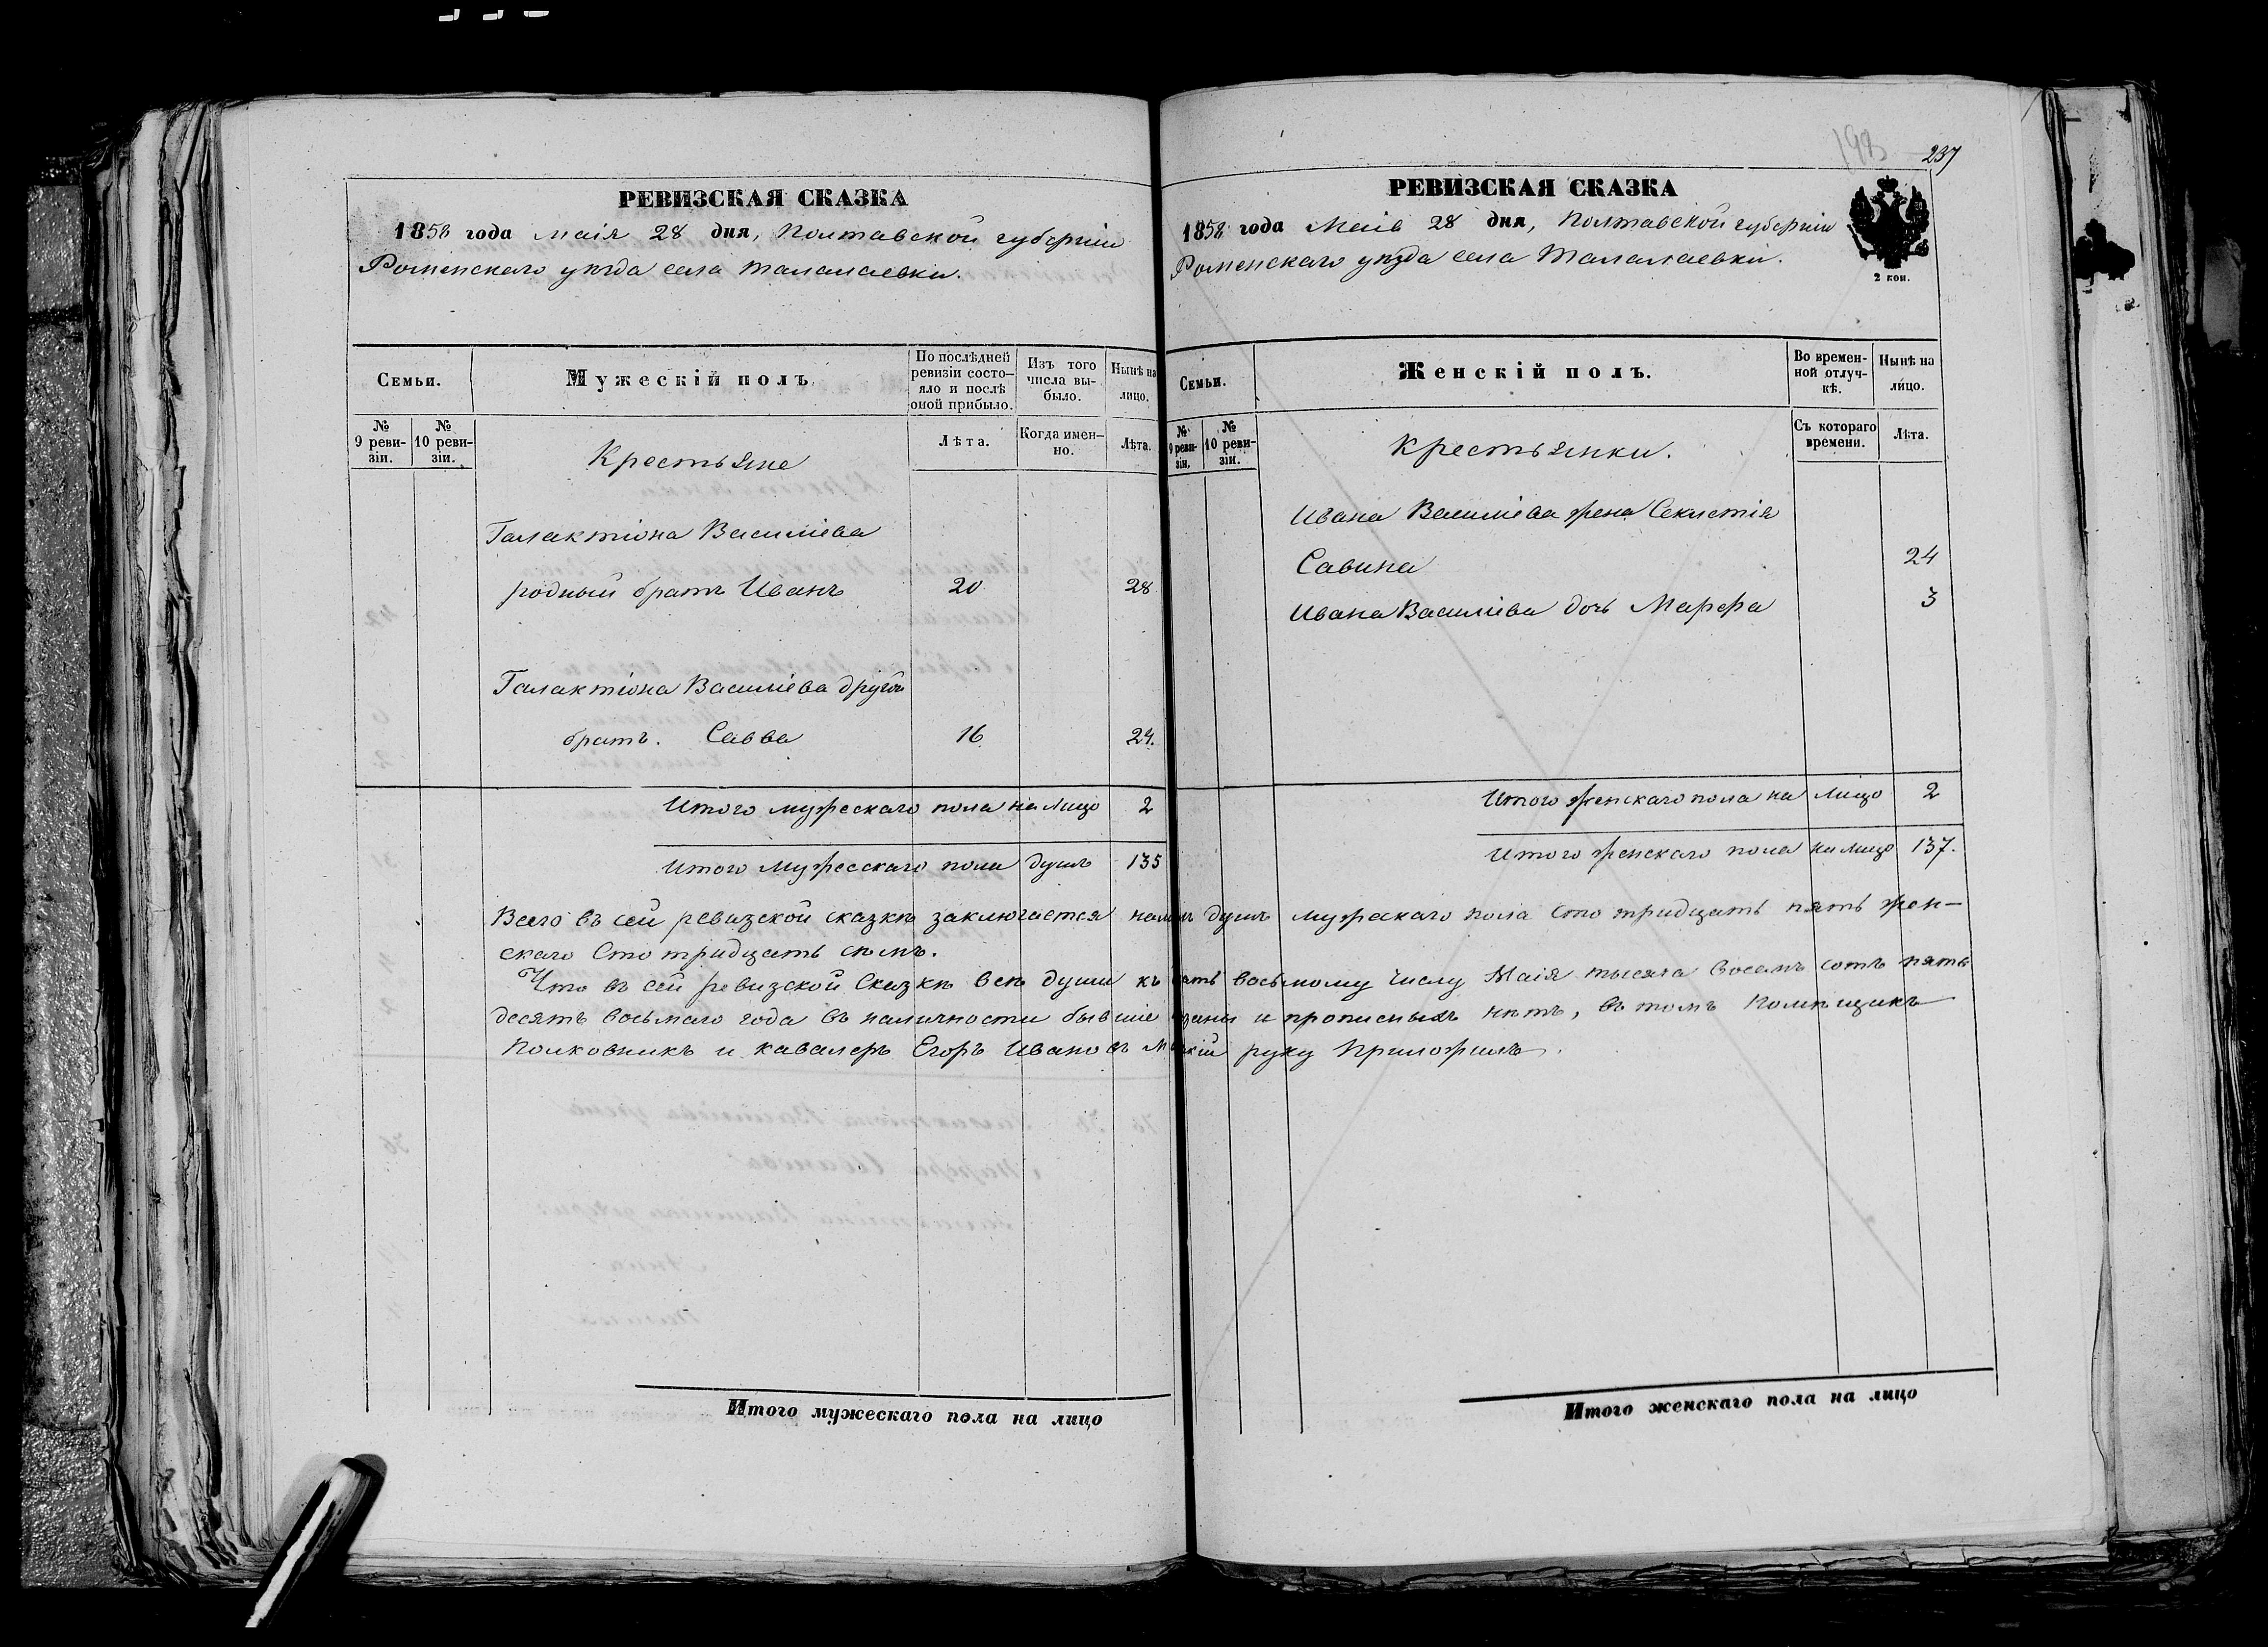 237
РЕВИЗСКАЯ СКАЗКА
1858 года Маія 28 дня, Полтавской губерніи
Роменскаго уѣзда села Талалаевки.
Семьи.
Мужескій полъ.
По послѣдней ревизіи состояло и послѣ оной прибыло.
Изъ того числа выбыло.
Нынѣ на лицо.
№ 9 ревизіи.
№ 10 ревизіи.
Крестьяне
Лѣта.
Когда именно.
Лѣта.
Галактіона Василіева
родный братъ Иванъ 20 28
Галактіона Василіева другой
братъ. Савва 16 24.
Итого мужескаго пола на лицо 2
Итого мужескаго пола душъ 135
РЕВИЗСКАЯ СКАЗКА
1858 года Маія 28 дня, Полтавской губерніи
Роменскаго уѣзда села Талалаевки.
2 коп.
Семьи.
Женскій полъ.
Во временной отлучкѣ.
Нынѣ на лицо.
№ 9 ревизіи.
№ 10 ревизіи.
Крестьянки.
Съ котораго времени.
Лѣта.
Ивана Василіева жена Секлетія
Савина 24
Ивана Василіева дочь Марфа 3
Итого женскаго пола на лицо 2
Итого женскаго пола на лицо 137.
Всего въ сей ревизской сказкѣ заключается душъ мужескаго пола сто тридцать пять жен-
скаго Сто тридцать семь.
Что въ сей ревизской Сказкѣ всѣ души къ восьмому числу Маія тысяча восемь сотъ пять
десятъ восьмаго года въ наличности бывшіе и прописныхъ нѣтъ, въ томъ Помѣщикъ
Полковникъ и кавалеръ Егоръ Ивановъ руку Приложилъ.
Итого мужескаго пола на лицо
Итого женскаго пола на лицо